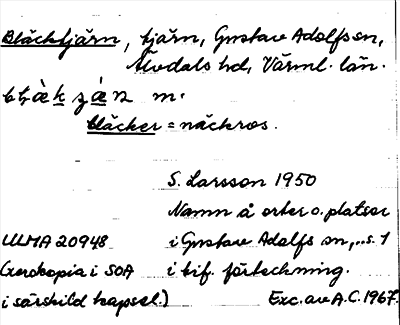 Bläcktjärn, tjärn, Gustav Adolfs sn,
Älvdals hd, Värml. län.
m.
bläcker = näckros.
S. Larsson 1950
Namn å orter o. platser
ULMA 20948 i Gustav Adolfs sn,.. s. 1
(xerokopia i SOA i tif. förteckning.
i särskild kapsel.) Exc. av A.C. 1967.